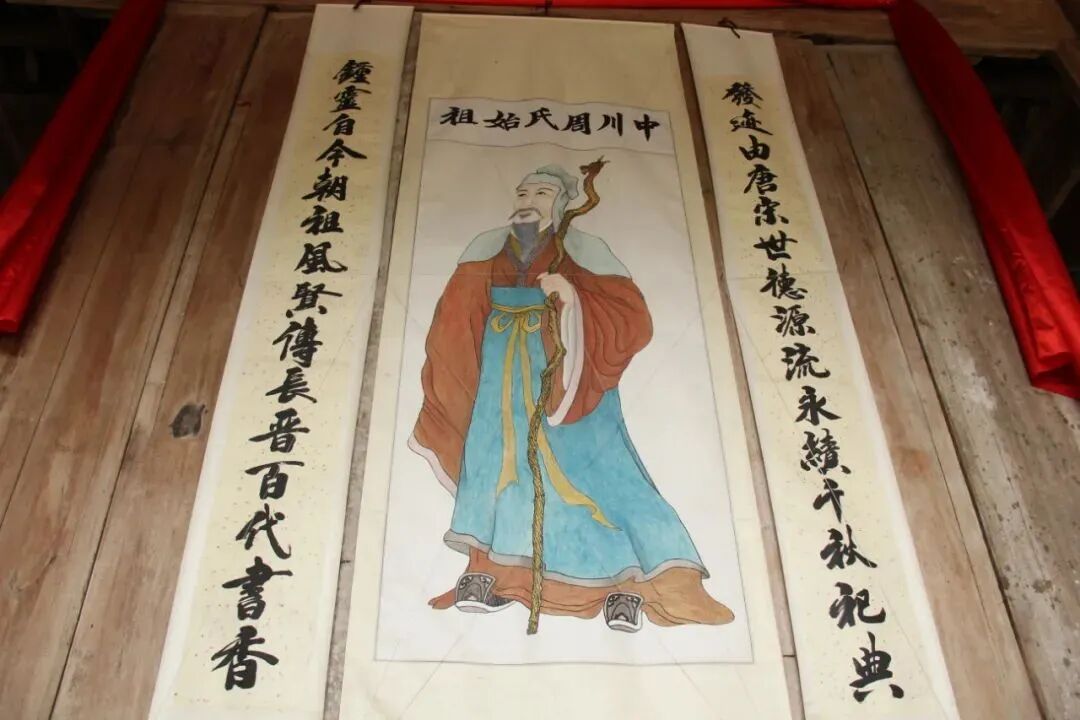 中川周氏始祖
發迹由唐宗世德源流永續千秋祀典
鍾靈自今朝祖風賢傳長晋百代書香